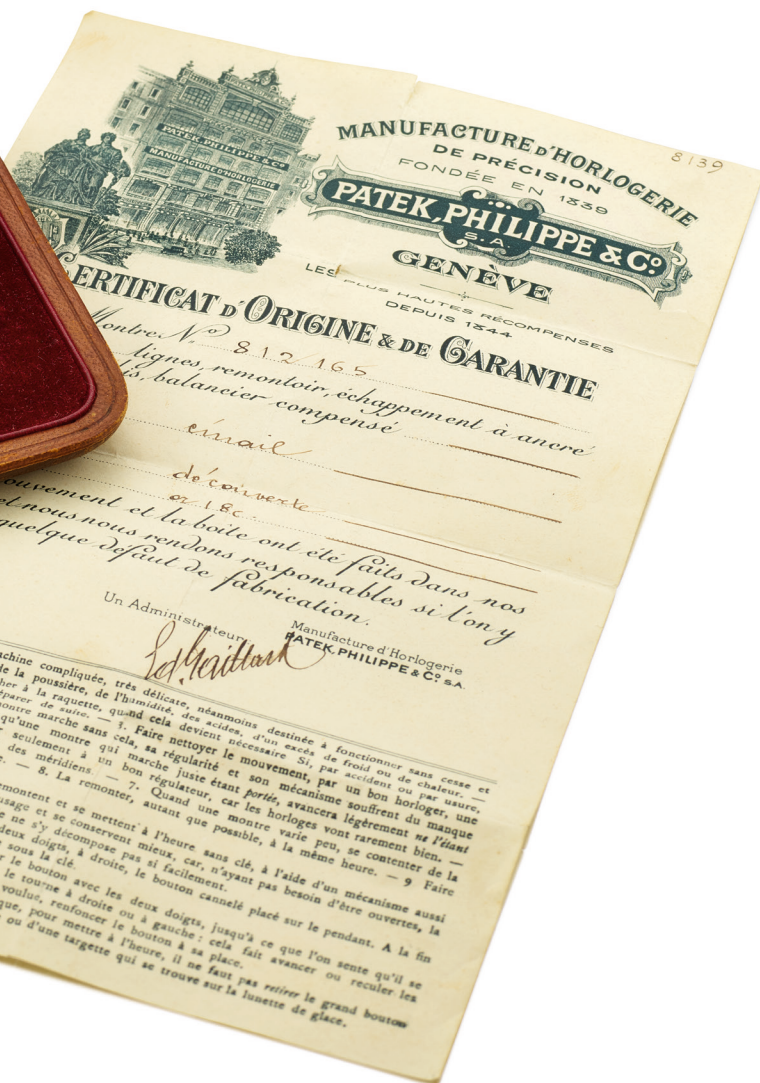 8139
MANUFACTURE D'HORLOGERIE
DE PRÉCISION
FONDÉE EN 1839
PATEK, PHILIPPE & Cº
S.A.
GENÈVE
LES PLUS HAUTES RÉCOMPENSES
DEPUIS 1844
PATEK, PHILIPPE & Cº
MANUFACTURE D'HORLOGERIE
CERTIFICAT D'ORIGINE & DE GARANTIE
Montre Nº 812165
lignes, remontoir, échappement à ancre
balancier compensé
émail
découverte
or 18c.
mouvement et la boîte ont été faits dans nos
et nous nous rendons responsables si l'on y
quelque défaut de fabrication.
Un Administrateur
Manufacture d'Horlogerie
PATEK, PHILIPPE & Cº S.A.
Ed. Gaillard
machine compliquée, très délicate, néanmoins destinée à fonctionner sans cesse et
de la poussière, de l'humidité, des acides, d'un excès de froid ou de chaleur. —
à la raquette, quand cela devient nécessaire Si, par accident ou par usure,
réparer de suite. — 3. Faire nettoyer le mouvement, par un bon horloger, une
montre marche sans cela, sa régularité et son mécanisme souffrent du manque
qu'une montre qui marche juste étant portée, avancera légèrement ne l'étant
seulement à un bon régulateur, car les horloges vont rarement bien. —
des méridiens. — 7. Quand une montre varie peu, se contenter de la
— 8. La remonter, autant que possible, à la même heure. — 9 Faire
remontent et se mettent à l'heure sans clé, à l'aide d'un mécanisme aussi
usage et se conservent mieux, car, n'ayant pas besoin d'être ouvertes, la
ne s'y décompose pas si facilement.
deux doigts, à droite, le bouton cannelé placé sur le pendant. A la fin
sous la clé.
le bouton avec les deux doigts, jusqu'à ce que l'on sente qu'il se
le tourne à droite ou à gauche : cela fait avancer ou reculer les
voulue, renfoncer le bouton à sa place.
que, pour mettre à l'heure, il ne faut pas retirer le grand bouton
ou d'une targette qui se trouve sur la lunette de glace.